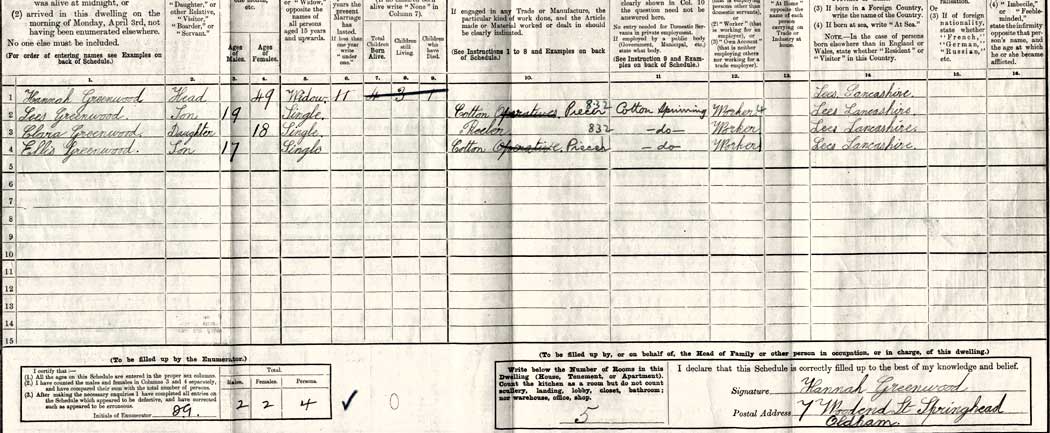 was alive at midnight, or
(2) arrived in this dwelling on the
morning of Monday, April 3rd, not
having been enumerated elsewhere.
No one else must be included.
(For order of entering names see Examples on
back of Schedule.)
"Daughter," or
other Relative,
"Visitor,"
"Boarder," or
"Servant."
etc.
Ages
of
Males.
Ages
of
Females.
or "Widow,"
opposite
the names
of all
persons
aged 15 years
and upwards.
years the
present
Marriage
has
lasted.
If less than
one year
write
"under
one."
alive write "None" in
Column 7).
Total
Children
Born
Alive.
Children
still
Living.
Children
who
have
Died.
If engaged in any Trade or Manufacture, the
particular kind of work done, and the Article
made or Material worked or dealt in should
be clearly indicated.
(See Instructions 1 to 8 and Examples on back
of Schedule.)
clearly shown in Col. 10
the question need not be
answered here.
No entry needed for Domestic Servants
in private employment.
If employed by a public body
(Government, Municipal, etc.)
state what body.
(See Instruction 9 and Examples
on back of Schedule.)
domestic servants),
or
(2) "Worker" (that
is working for an
employer), or
(3) "Own Account"
(that is neither
employing others
nor working for a
trade employer).
"At Home"
opposite the
name of each
person
carrying on
Trade or
Industry at
home.
(3) If born in a Foreign Country,
write the name of the Country.
(4) If born at sea, write "At Sea."
NOTE.—In the case of persons
born elsewhere than in England or
Wales, state whether "Resident" or
"Visitor" in this Country.
or
(3) If of foreign
nationality,
state whether
"French,"
"German,"
"Russian,"
etc.
(4) "Imbecile,"
or "Feeble-
minded,"
state the infirmity
opposite that per-
son's name, and
the age at which
he or she became
afflicted.
1. 2. 3. 4. 5. 6. 7. 8. 9. 10. 11. 12. 13. 14. 15. 16.
1 Hannah Greenwood Head 49 Widow 11 4 3 1 Lees. Lancashire.
2 Lees Greenwood. Son 19 Single. Cotton Operatives Piecer 832 Cotton Spinning Worker 4 Lees Lancashire.
3 Clara Greenwood. Daughter 18 Single. Reeler 832 —do— Worker Lees Lancashire.
4 Ellis Greenwood. Son 17 Single Cotton Operative. Piecer — do Worker Lees Lancashire.
5
6
7
8
9
10
11
12
13
14
15
(To be filled up by the Enumerator.)
I certify that:—
(1.) All the ages on this Schedule are entered in the proper sex columns.
(2.) I have counted the males and females in Columns 3 and 4 separately,
and have compared their sum with the total number of persons.
(3.) After making the necessary enquiries I have completed all entries on
the Schedule which appeared to be defective, and have corrected
such as appeared to be erroneous.
Initials of Enumerator
Total.
Males. Females. Persons.
2 2 4
0
(To be filled up by, or on behalf of, the Head of Family or other person in occupation, or in charge, of this dwelling.)
Write below the Number of Rooms in this
Dwelling (House, Tenement, or Apartment).
Count the kitchen as a room but do not count
scullery, landing, lobby, closet, bathroom;
nor warehouse, office, shop.
5
I declare that this Schedule is correctly filled up to the best of my knowledge and belief.
Signature Hannah Greenwood
Postal Address 7 Woodend St Springhead
Oldham.